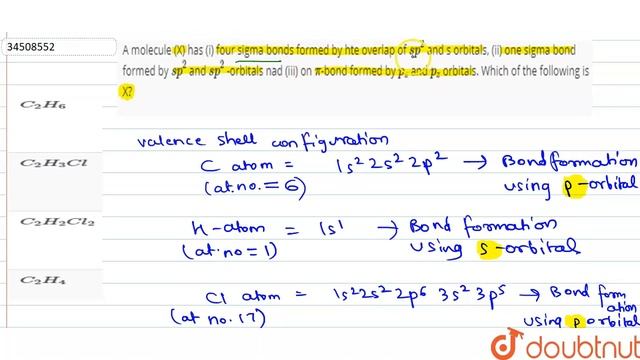 34508552
A molecule (X) has (i) four sigma bonds formed by hte overlap of sp² and s orbitals, (ii) one sigma bond
formed by sp² and sp² -orbitals nad (iii) on π-bond formed by p_z and p_z orbitals. Which of the following is
X?
C₂H₆
valence shell configuration
C₂H₃Cl
C atom = 1s² 2s² 2p² → Bond formation
(at.no.=6) using p-orbital
H-atom = 1s¹ → Bond formation
C₂H₂Cl₂
(at.no=1) using s-orbitals
C₂H₄
Cl atom = 1s² 2s² 2p⁶ 3s² 3p⁵ → Bond formation
(at no.17) using p orbital
doubtnut